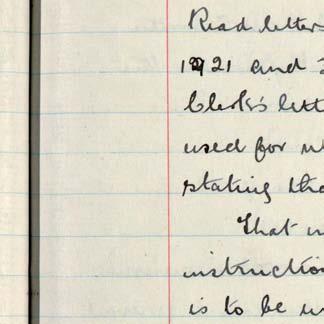 Read letter
1921 and
Clerk's lett
used for
stating tha
That
instruction
is to be